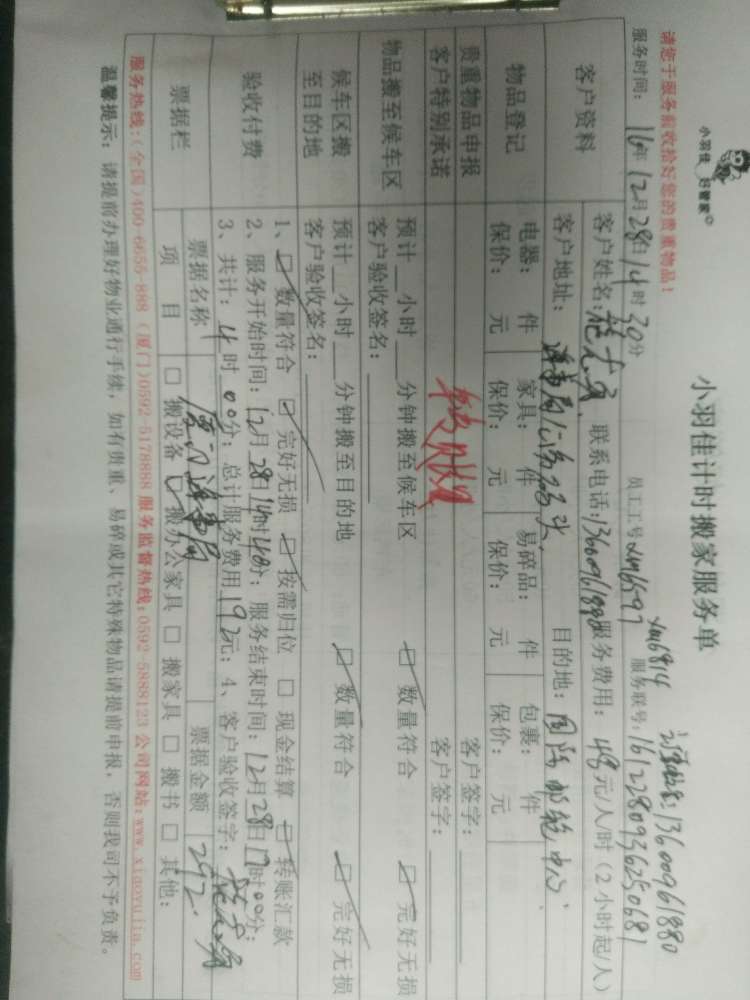 小羽佳 好管家
小羽佳计时搬家服务单
13600961880
请您于服务前收拾好您的贵重物品！
员工工号 xm6597 xm6814 服务联号：1612280936250681
服务时间：16年12月28日14时30分
客户资料
客户姓名： 联系电话：13600961880 服务费用：48元/人/时（2小时起/人）
客户地址： 目的地：国际邮轮中心
物品登记
电器： 件 家具： 件 易碎品： 件 包裹： 件
保价： 元 保价： 元 保价： 元 保价： 元
贵重物品申报 客户签字：
客户特别承诺 客户签字：
物品搬至候车区
预计__小时__分钟搬至候车区 ☑ 数量符合 ☑ 完好无损
客户验收签名：
候车区搬至目的地
预计__小时__分钟搬至目的地 ☑ 数量符合 ☑ 完好无损
客户验收签名：
验收付费
1、☑ 数量符合 ☑ 完好无损 ☑ 按需归位 □ 现金结算 ☑ 转账汇款
2、服务开始时间：12月28日14时40分；服务结束时间：12月28日17时00分；
3、共计：4时00分；总计服务费用192元；4、客户验收签字：
票据栏
票据名称 厦门海事局 票据金额 292.
项 目 □ 搬设备 ☑ 搬办公家具 □ 搬家具 □ 搬书 □ 其他：
服务热线：(全国)400-6655-888 (厦门)0592-5178888 服务监督热线：0592-5888123 公司网站：www.xiaoyujia.com
温馨提示：请提前办理好物业通行手续，如有贵重、易碎或其它特殊物品请提前申报，否则我司不予负责。